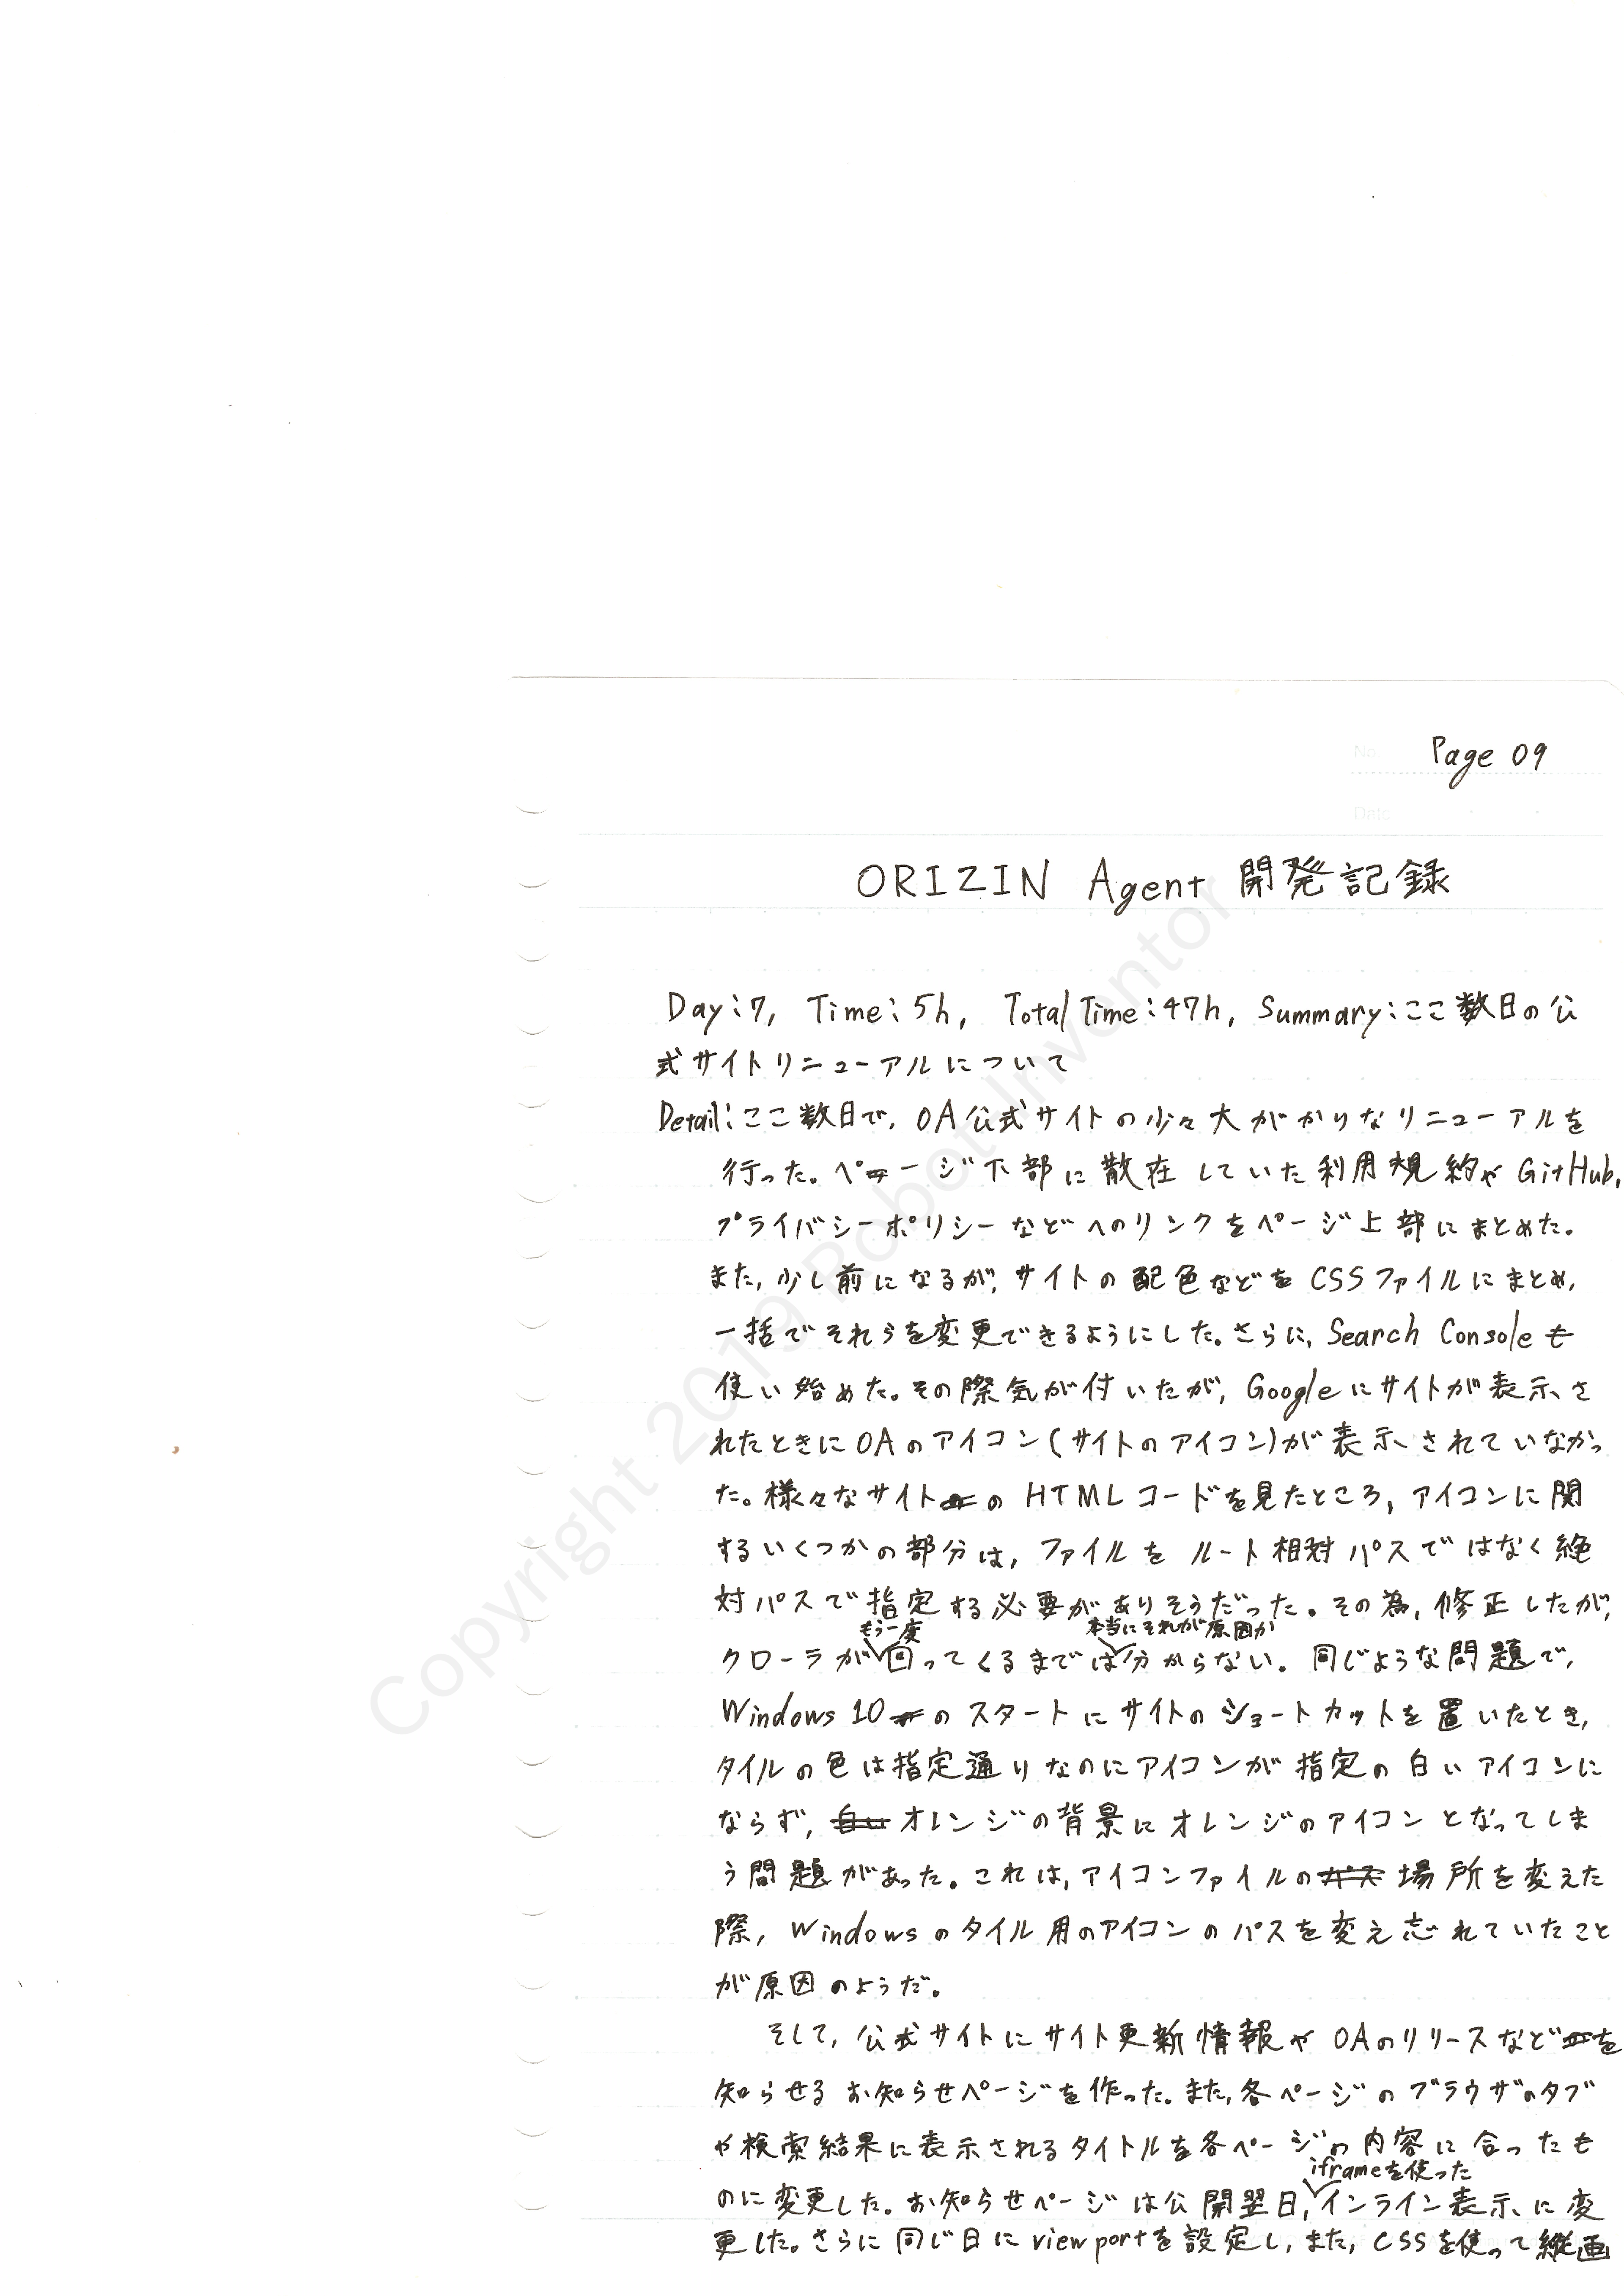 Page 09
ORIZIN Agent 開発記録
Day:7, Time:5h, Total Time:47h, Summary:ここ数日の公
式サイトリニューアルについて
Detail:ここ数日で,OA公式サイトの少々大がかりなリニューアルを
行った。ページ下部に散在していた利用規約やGitHub,
プライバシーポリシーなどへのリンクをページ上部にまとめた。
また,少し前になるが,サイトの配色などをCSSファイルにまとめ,
一括でそれらを変更できるようにした。さらに,Search Consoleも
使い始めた。その際気が付いたが,Googleにサイトが表示さ
れたときにOAのアイコン(サイトのアイコン)が表示されていなかっ
た。様々なサイトのHTMLコードを見たところ,アイコンに関
するいくつかの部分は,ファイルをルート相対パスではなく絶
対パスで指定する必要がありそうだった。その為,修正したが,
クローラがもう一度回ってくるまでは本当にそれが原因か分からない。同じような問題で,
Windows 10のスタートにサイトのショートカットを置いたとき,
タイルの色は指定通りなのにアイコンが指定の白いアイコンに
ならず,オレンジの背景にオレンジのアイコンとなってしま
う問題があった。これは,アイコンファイルの場所を変えた
際,Windowsのタイル用のアイコンのパスを変え忘れていたこと
が原因のようだ。
そして,公式サイトにサイト更新情報やOAのリリースなどを
知らせるお知らせページを作った。また,各ページのブラウザのタブ
や検索結果に表示されるタイトルを各ページの内容に合ったも
のに変更した。お知らせページは公開翌日,iframeを使ったインライン表示に変
更した。さらに同じ日にviewportを設定し,また,CSSを使って縦画
Copyright 2019 Robot Inventor
No.
Date